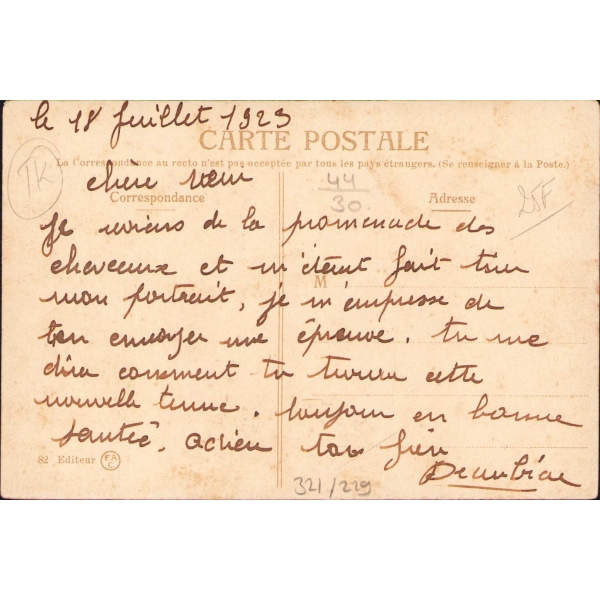 le 18 juillet 1923
CARTE POSTALE
La Correspondance au recto n'est pas acceptée par tous les pays étrangers. (Se renseigner à la Poste.)
TK
chère sœur
44
30
25F
Correspondance
Adresse
je reviens de la promenade des
cheveaux et m'étant fait tirer
M
mon portrait, je m'empresse de
ten envoyer une épreuve. tu me
dira comment tu trouve cette
nouvelle tenue. toujour en bonne
santée. adieu ton frère
82 Editeur
321/229